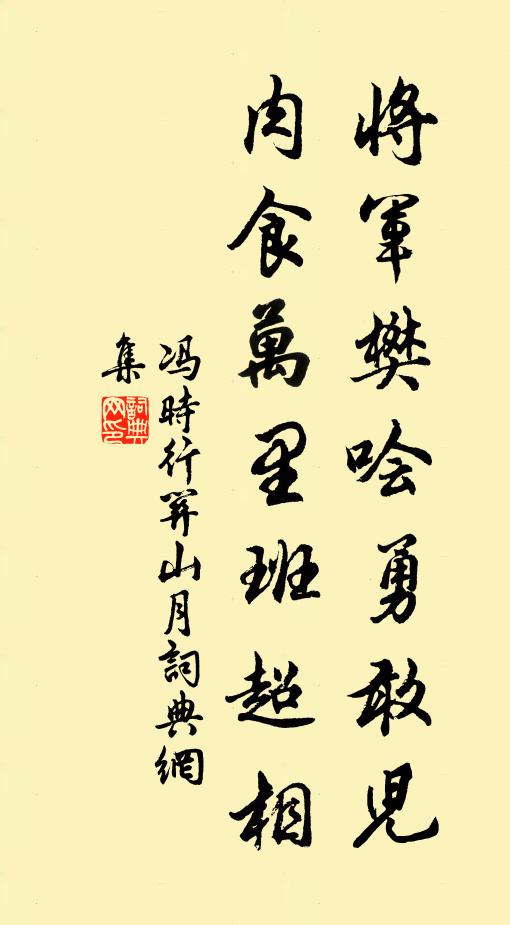 將軍樊噲勇敢兒
肉食萬里班超相
冯時行關山月詞典網
集
詞典網印